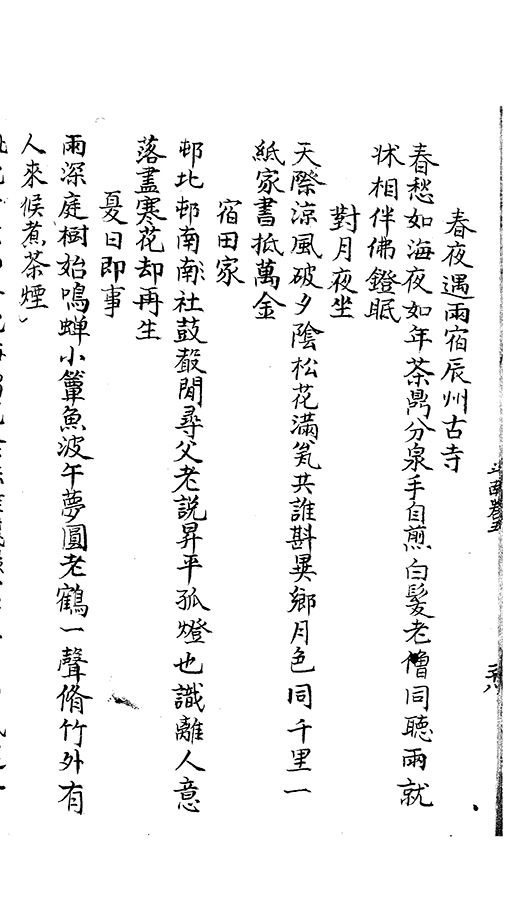 春夜遇雨宿辰州古寺
春愁如海夜如年茶鼎分泉手自煎白髮老僧同聽雨就
牀相伴佛鐙眠
對月夜坐
天際涼風破夕陰松花滿瓮共誰斟異鄉月色同千里一
紙家書抵萬金
宿田家
邨北邨南南社鼓聲閒尋父老説昇平孤燈也識離人意
落盡寒花却再生
夏日即事
雨深庭樹始鳴蟬小簟魚波午夢圓老鶴一聲脩竹外有
人來候煮茶煙